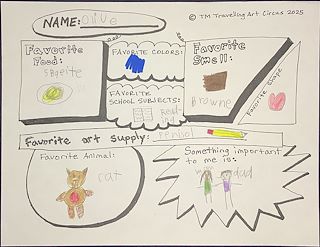 NAME: Olive
© TM Travelling Art Circus 2025
Favorite Food:
Spgetie
FAVORITE COLORS:
FAVORITE SCHOOL SUBJECTS:
Read
Favorite Smell:
Browne
Favorite Shape
Favorite art supply: pensol
Favorite Animal:
cat
Something important to me is:
dad